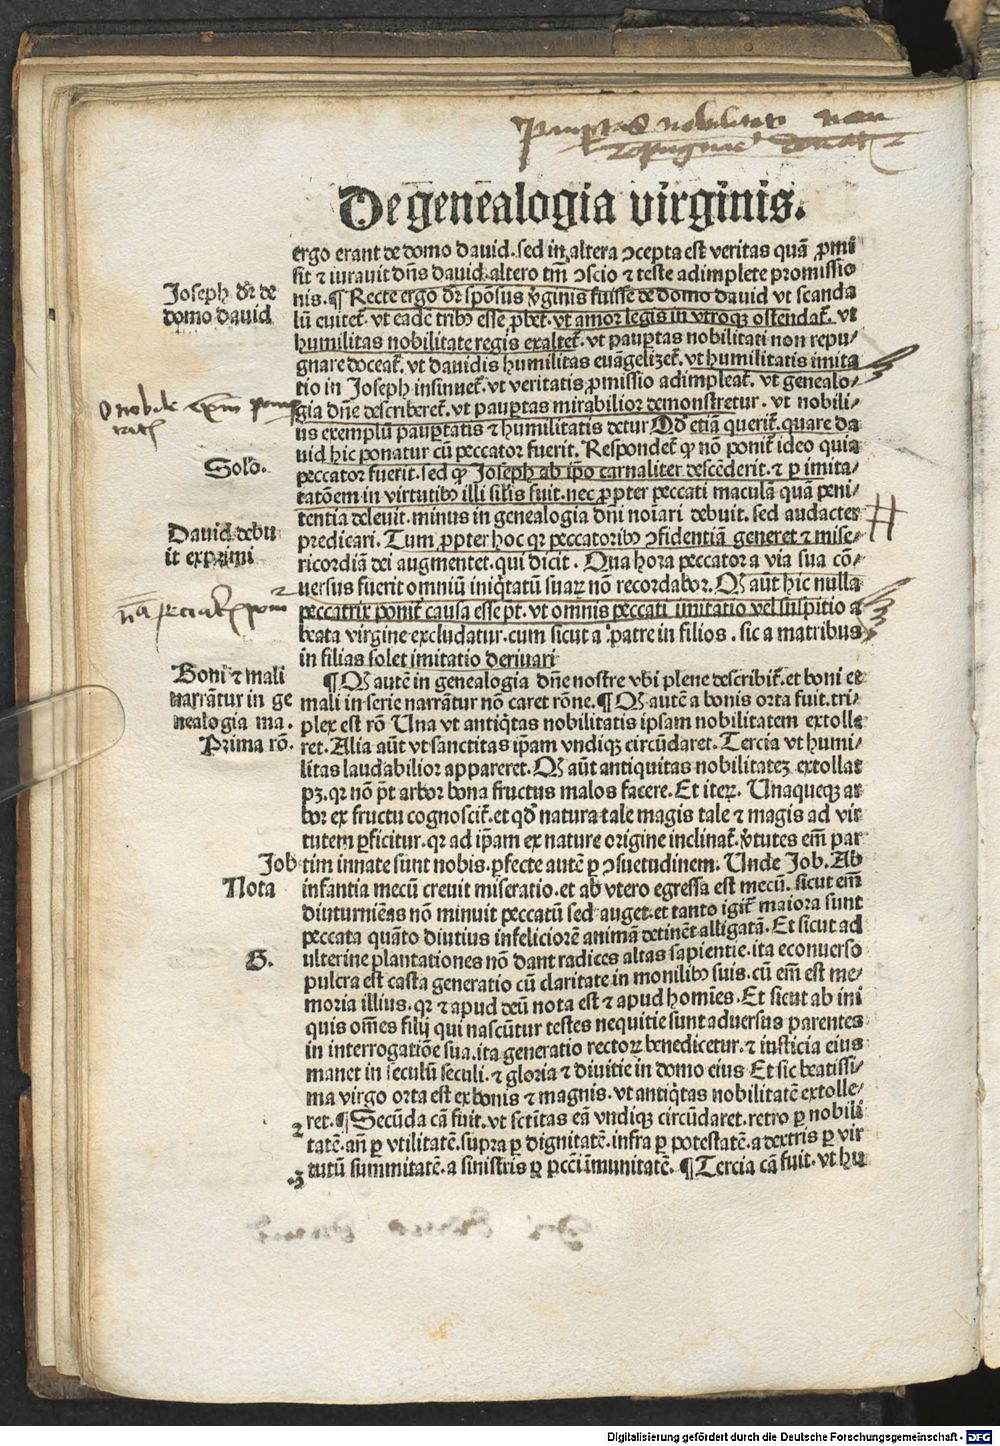 Paup̱tas nobilitati non
repugnat
De genēalogia virginis.
ergo erant de domo dauid. sed in altera ↄcepta est veritas quā ꝓmi
sit ⁊ iurauit dn̄s dauid. altero tm̄ ↄscio ⁊ teste adimplete promissio
Joseph dr̄ de
domo dauid
nis. ¶ Recte ergo dr̄ spōsus v̓ginis fuisse de domo dauid vt scanda
lū euitet᷑. vt eadē tribꝰ esse ꝓbet᷑. vt amor legis in vtroqꝫ ostendat᷑. vt
humilitas nobilitate regis exaltet᷑. vt pauꝑtas nobilitati non repu-
gnare doceat᷑. vt dauidis humilitas euāgelizet᷑. vt humilitatis imita
tio in Joseph insinuet᷑. vt veritatis ꝓmissio adimpleat᷑. vt genealo-
O nobile
gia dn̄e describeret᷑. vt pauꝑtas mirabilior demonstretur. vt nobili-
us exemplū pauꝑtatis ⁊ humilitatis detur Qd̓ etiā querit᷑. quare da
uid hic ponatur cū peccator fuerit. Respondet᷑ ꝙ nō ponit᷑ ideo quia
Solō.
peccator fuerit. sed ꝙ Joseph ab ip̄o carnaliter descēderit. ⁊ ꝑ imita-
tatōem in virtutibꝰ illi sil̄is fuit. nec ꝓpter peccati maculā quā peni-
tentia deleuit. minus in genealogia dn̄i noīari debuit. sed audacter
Dauid debu
it exprimi
predicari. Tum ꝓpter hoc qꝛ peccatoribꝰ ↄfidentiā generet ⁊ mise-
ricordiā dei augmentet. qui dicit. Qua hora peccator a via sua cō-
uersus fuerit omniū iniq̇tatū suaꝝ nō recordabor. Ꝙ aūt hic nulla
peccatrix ponit᷑ causa esse pt̄. vt omnis peccati imitatio vel suspitio a
beata virgine excludatur. cum sicut a patre in filios. sic a matribus
in filias solet imitatio deriuari
Boni ⁊ mali
narrātur in ge
nealogia ma.
Prima rō.
¶ Ꝙ autē in genealogia dn̄e nostre vbi plene describit᷑. et boni et
mali in serie narrātur nō caret rōne. ¶ Ꝙ autē a bonis orta fuit. tri-
plex est rō Una vt antiq̇tas nobilitatis ipsam nobilitatem extolle
ret. Alia aūt vt sanctitas ip̄am vndiqꝫ circūdaret. Tercia vt humi-
litas laudabilior appareret. Ꝙ aūt antiquitas nobilitateꝫ extollat
pꝫ. qꝛ nō pt̄ arbor bona fructus malos facere. Et iteꝝ. Unaqueqꝫ ar
bor ex fructu cognoscit᷑. et qd̓ natura tale magis tale ⁊ magis ad vir
tutem ꝑficitur. qꝛ ad ip̄am ex nature origine inclinat᷑. v̓tutes em̄ par
Job
tim innate sunt nobis. ꝑfecte autē ꝑ ↄsuetudinem. Unde Job. Ab
Nota
infantia mecū creuit miseratio. et ab vtero egressa est mecū. sicut em̄
diuturnitas nō minuit peccatū sed auget. et tanto igit᷑ maiora sunt
peccata quāto diutius infeliciorē animā detinēt alligatā. Et sicut ad
G.
ulterine plantationes nō dant radices altas sapientie. ita econuerso
pulcra est casta generatio cū claritate in monilibꝰ suis. cū em̄ est me-
moria illius. qꝛ ⁊ apud deū nota est ⁊ apud homīes. Et sicut ab ini
quis om̄es filij qui nascūtur testes nequitie sunt aduersus parentes
in interrogatiōe sua. ita generatio rectoꝝ benedicetur. ⁊ iusticia eius
manet in seculū seculi. ⁊ gloria ⁊ diuitie in domo eius Et sic beatissi-
ma virgo orta est ex bonis ⁊ magnis. vt antiq̇tas nobilitatē extolle-
2
ret. ¶ Secūda cā fuit. vt sctītas eā vndiqꝫ circūdaret. retro ꝑ nobili
tatē. an̄ ꝑ vtilitatē. supra ꝑ dignitatē. infra ꝑ potestatē. a dextris ꝑ vir
3
tutū summitatē. a sinistris ꝑ pcc̄i īmunitatē. ¶ Tercia cā fuit. vt hu
Digitalisierung gefördert durch die Deutsche Forschungsgemeinschaft - DFG